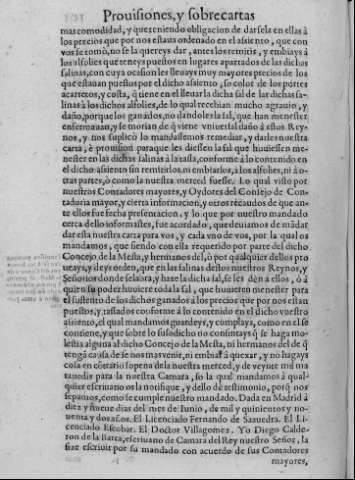 Prouisiones, y sobrecartas
mas comodidad, y que teniendo obligacion de darsela en ellas à
los precios que por nos estaua ordenado en el asiento, que con
vos se tomò, no se la quereys dar, antes los remitis, y embiays à
los alfolies que teneys puestos en lugares apartados de las dichas
salinas, con cuya ocasion les lleuays muy mayores precios de los
que estauan puestos por el dicho asiento, so color de los portes
acarretos, y costa, q̃ tiene en el lleuar la dicha sal de las dichas sa-
linas à los dichos alfolies, de lo qual recebian mucho agrauio, y
daño, porque los ganados, no dandoles la sal, que han menester
enfermauan, y se morian de q̃ viene vniuersal daño à estos Rey-
nos, y nos suplicò lo mandassemos remediar, y darles nuestra
carta, è prouision para que les diessen la sal que huuiessen me-
nester en las dichas salinas à la tassa, conforme à lo contenido en
el dicho asiento sin remitirlos, ni embiarlos, à los alfolies, ni à o-
tras partes, ò como la nuestra merced fuesse. Lo qual visto por
nuestros Contadores mayores, y Oydores del Consejo de Con-
taduria mayor, y cierta informacion, y otros recaudos de que an-
te ellos fue fecha presentacion, y lo que por nuestro mandado
cerca dello informastes, fue acordado, que deuiamos de mãdar
dar esta nuestra carta para vos, y cada vno de vos, por la qual os
mandamos, que siendo con ella requerido por parte del dicho
Concejo de la Mesta, y hermanos del, ò por qualquier dellos pro
ueays, y deys orden, que en las salinas destos nuestros Reynos, y
Señorios donde se labra, y haze la dicha sal, se les den à ellos, ò à
quien su poder huuiere toda la sal, que huuieren menester para
el sustento de los dichos ganados à los precios que por nos estan
puestos, y tassados conforme à lo contenido en el dicho vuestro
asiento, el qual mandamos guardeys, y cumplays, como en el se
contiene, y que sobre lo susodicho no consintays q̃ se haga mo-
lestia alguna al dicho Concejo de la Mesta, ni hermanos del de q̃
tengã causa de se nos mas venir, ni embiar à quexar, y no hagays
cosa en contrario so pena de la nuestra merced, y de veynte mil ma
rauedis para la nuestra Camara, so la qual mandamos à qual-
quier escriuano os la notifique, y dello dè testimonio, porq̃ nos
sepamos, como se cumple nuestro mandado. Dada en Madrid à
diez y nueue dias del mes de Iunio, de mil y quinientos y no-
uenta y dos años. El Licenciado Fernando de Saauedra. El Li-
cenciado Escobar. El Doctor Villagomez. Yo Diego Calde-
ron de la Barca, escriuano de Camara del Rey nuestro Señor, la
fize escriuir por su mandado con acuerdo de sus Contadores
mayores,